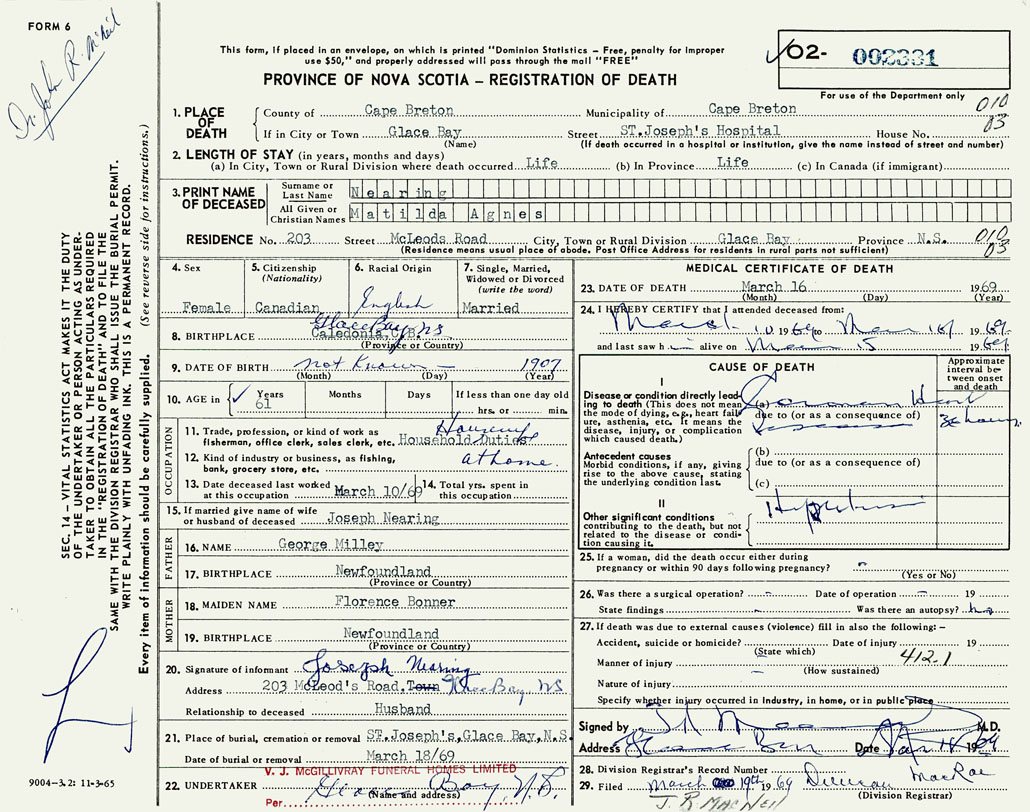 FORM 6
Dr. John R. McNeil
This form, if placed in an envelope, on which is printed "Dominion Statistics – Free, penalty for improper
use $50," and properly addressed will pass through the mail "FREE"
PROVINCE OF NOVA SCOTIA – REGISTRATION OF DEATH
02- 002331
For use of the Department only
1. PLACE OF DEATH
County of Cape Breton Municipality of Cape Breton 010
If in City or Town Glace Bay Street ST.Joseph's Hospital House No. 03
(Name) (If death occurred in a hospital or institution, give the name instead of street and number)
2. LENGTH OF STAY (in years, months and days)
(a) In City, Town or Rural Division where death occurred Life (b) In Province Life (c) In Canada (if immigrant)
3. PRINT NAME OF DECEASED
Surname or Last Name Nearing
All Given or Christian Names Matilda Agnes
RESIDENCE No. 203 Street McLeods Road City, Town or Rural Division Glace Bay Province N.S. 010
(Residence means usual place of abode. Post Office Address for residents in rural parts not sufficient) 03
4. Sex
Female
5. Citizenship
(Nationality)
Canadian
6. Racial Origin
English
7. Single, Married,
Widowed or Divorced
(write the word)
Married
Glace Bay NS
8. BIRTHPLACE Caledonia, C.B.
(Province or Country)
9. DATE OF BIRTH not Known 1907
(Month) (Day) (Year)
10. AGE in Years Months Days If less than one day old
61 hrs. or min.
OCCUPATION
11. Trade, profession, or kind of work as
fisherman, office clerk, sales clerk, etc. Household Duties
12. Kind of industry or business, as fishing,
bank, grocery store, etc. at home.
13. Date deceased last worked
at this occupation March 10/69
14. Total yrs. spent in
this occupation
15. If married give name of wife
or husband of deceased Joseph Nearing
FATHER
16. NAME George Milley
17. BIRTHPLACE Newfoundland
(Province or Country)
MOTHER
18. MAIDEN NAME Florence Bonner
19. BIRTHPLACE Newfoundland
(Province or Country)
20. Signature of informant Joseph Nearing
Address 203 McLeod's Road, Town Glace Bay, NS
Relationship to deceased Husband
21. Place of burial, cremation or removal ST.Joseph's,Glace Bay,N.S.
Date of burial or removal March 18/69
V. J. McGILLIVRAY FUNERAL HOMES LIMITED
22. UNDERTAKER Glace Bay, N.S.
(Name and address)
Per
MEDICAL CERTIFICATE OF DEATH
23. DATE OF DEATH March 16 1969
(Month) (Day) (Year)
24. I HEREBY CERTIFY that I attended deceased from:
March 10 1969 to Mar 16 1969
and last saw h alive on Mar 15 1969
CAUSE OF DEATH
Approximate
interval be-
tween onset
and death
I
Disease or condition directly lead-
ing to death (This does not mean
the mode of dying, e.g., heart fail-
ure, asthenia, etc. It means the
disease, injury, or complication
which caused death.)
(a) Coronary Heart
due to (or as a consequence of)
Disease
Antecedent causes
Morbid conditions, if any, giving
rise to the above cause, stating
the underlying condition last.
(b)
due to (or as a consequence of)
(c)
II
Other significant conditions
contributing to the death, but not
related to the disease or condi-
tion causing it.
25. If a woman, did the death occur either during
pregnancy or within 90 days following pregnancy?
(Yes or No)
26. Was there a surgical operation? – Date of operation – 19
State findings – Was there an autopsy? no
27. If death was due to external causes (violence) fill in also the following: –
Accident, suicide or homicide? Date of injury 19
(State which) 412.1
Manner of injury
(How sustained)
Nature of injury
Specify whether injury occurred in industry, in home, or in public place
Signed by M.D.
Address Glace Bay Date Mar 18 1969
28. Division Registrar's Record Number
29. Filed March 19th 1969 Duncan MacRae
(Division Registrar)
J. R. MacNeil
SEC. 14 – VITAL STATISTICS ACT MAKES IT THE DUTY
OF THE UNDERTAKER OR PERSON ACTING AS UNDER-
TAKER TO OBTAIN ALL THE PARTICULARS REQUIRED
IN THE "REGISTRATION OF DEATH" AND TO FILE THE
SAME WITH THE DIVISION REGISTRAR WHO SHALL ISSUE THE BURIAL PERMIT.
WRITE PLAINLY WITH UNFADING INK. THIS IS A PERMANENT RECORD.
Every item of information should be carefully supplied. (See reverse side for instructions.)
9004-3.2: 11-3-65